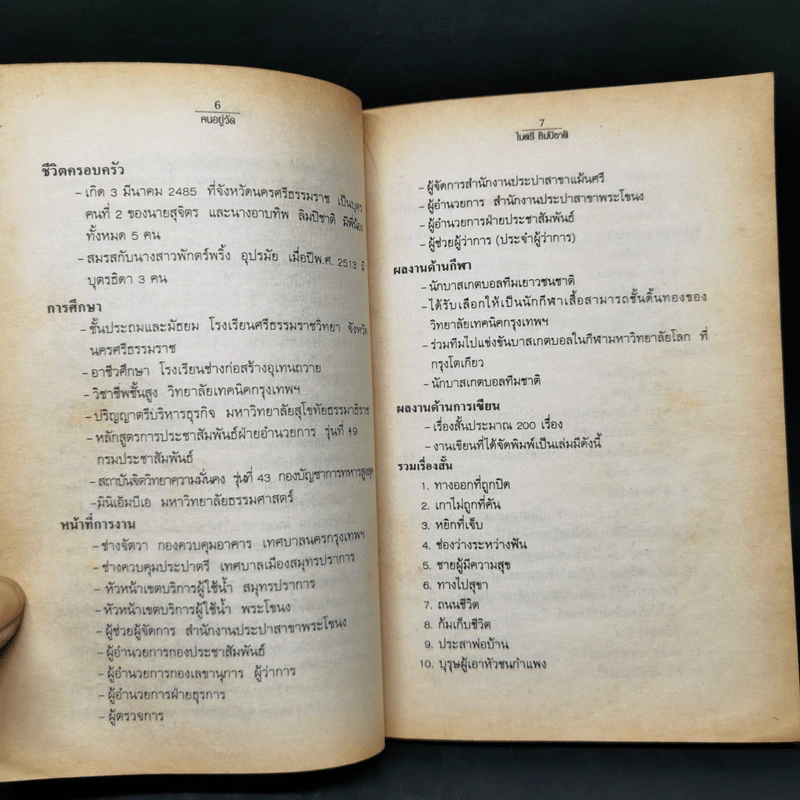 6
คนอยู่วัด
ชีวิตครอบครัว
– เกิด 3 มีนาคม 2485 ที่จังหวัดนครศรีธรรมราช เป็นบุตร
คนที่ 2 ของนายสุจิตร และนางอาบทิพ ลิมปิชาติ มีพี่น้อง
ทั้งหมด 5 คน
– สมรสกับนางสาวพักตร์พริ้ง อุปรมัย เมื่อปีพ.ศ. 2513 มี
บุตรธิดา 3 คน
การศึกษา
– ชั้นประถมและมัธยม โรงเรียนศรีธรรมราชวิทยา จังหวัด
นครศรีธรรมราช
– อาชีวศึกษา โรงเรียนช่างก่อสร้างอุเทนถวาย
– วิชาชีพชั้นสูง วิทยาลัยเทคนิคกรุงเทพฯ
– ปริญญาตรีบริหารธุรกิจ มหาวิทยาลัยสุโขทัยธรรมาธิราช
– หลักสูตรการประชาสัมพันธ์ฝ่ายอำนวยการ รุ่นที่ 19
กรมประชาสัมพันธ์
– สถาบันจิตวิทยาความมั่นคง รุ่นที่ 43 กองบัญชาการทหารสูงสุด
– มินิเอ็มบีเอ มหาวิทยาลัยธรรมศาสตร์
หน้าที่การงาน
– ช่างจัตวา กองควบคุมอาคาร เทศบาลนครกรุงเทพฯ
– ช่างควบคุมประปาตรี เทศบาลเมืองสมุทรปราการ
– หัวหน้าเขตบริการผู้ใช้น้ำ สมุทรปราการ
– หัวหน้าเขตบริการผู้ใช้น้ำ พระโขนง
– ผู้ช่วยผู้จัดการ สำนักงานประปาสาขาพระโขนง
– ผู้อำนวยการกองประชาสัมพันธ์
– ผู้อำนวยการกองเลขานุการ ผู้ว่าการ
– ผู้อำนวยการฝ่ายธุรการ
– ผู้ตรวจการ
7
ไมตรี ลิมปิชาติ
– ผู้จัดการสำนักงานประปาสาขาแม้นศรี
– ผู้อำนวยการ สำนักงานประปาสาขาพระโขนง
– ผู้อำนวยการฝ่ายประชาสัมพันธ์
– ผู้ช่วยผู้ว่าการ (ประจำผู้ว่าการ)
ผลงานด้านกีฬา
– นักบาสเกตบอลทีมเยาวชนชาติ
– ได้รับเลือกให้เป็นนักกีฬาเสื้อสามารถชั้นดิ้นทองของ
วิทยาลัยเทคนิคกรุงเทพฯ
– ร่วมทีมไปแข่งขันบาสเกตบอลในกีฬามหาวิทยาลัยโลก ที่
กรุงโตเกียว
– นักบาสเกตบอลทีมชาติ
ผลงานด้านการเขียน
– เรื่องสั้นประมาณ 200 เรื่อง
– งานเขียนที่ได้จัดพิมพ์เป็นเล่มมีดังนี้
รวมเรื่องสั้น
1. ทางออกที่ถูกปิด
2. เกาไม่ถูกที่คัน
3. หยิกที่เจ็บ
4. ช่องว่างระหว่างฟัน
5. ชายผู้มีความสุข
6. ทางไปสุขา
7. ถนนชีวิต
8. ก้มเก็บชีวิต
9. ประสาพ่อบ้าน
10. บุรุษผู้เอาหัวชนกำแพง